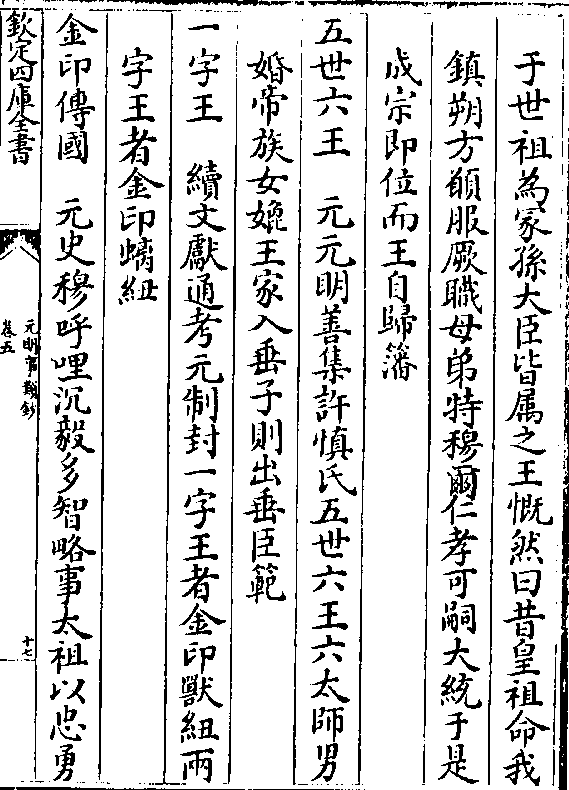 于世祖為冢孫大臣皆属之王慨然曰昔皇祖命我
鎮朔方頟服厥職母弟特穆爾仁孝可嗣大統于是
成宗即位而王自歸籓
五世六王　元元明善集許慎氏五世六王六太師男
婚帝族女媲王家入垂子則出垂臣範
一字王　續文獻通考元制封一字王者金印獸紐兩
字王者金印螭紐
金印傳國　元史穆呼哩沉毅多智略事太祖以忠勇
欽定四庫全書
元明事類鈔
卷五
十七